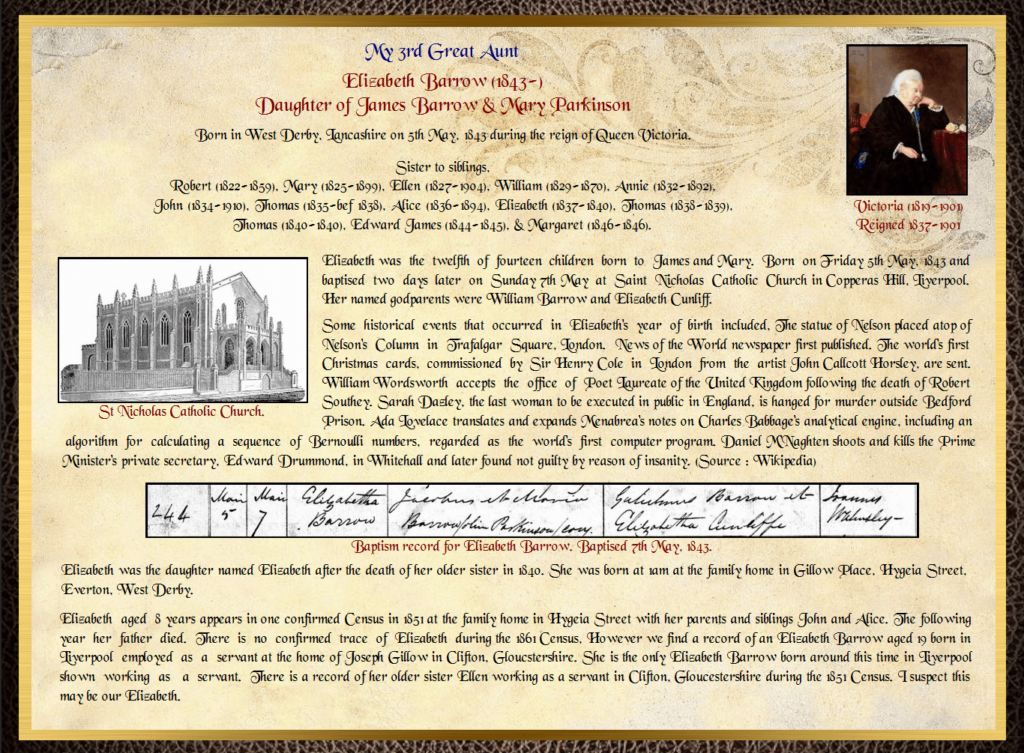 My 3rd Great Aunt
Elizabeth Barrow (1843-)
Daughter of James Barrow & Mary Parkinson
Born in West Derby, Lancashire on 5th May, 1843 during the reign of Queen Victoria.
Sister to siblings,
Robert (1822-1859), Mary (1825-1899), Ellen (1827-1904), William (1829-1870), Annie (1832-1892),
John (1834-1910), Thomas (1835-bef 1838), Alice (1836-1894), Elizabeth (1837-1840), Thomas (1838-1839),
Thomas (1840-1840), Edward James (1844-1845), & Margaret (1846-1846).
Victoria (1819-1901)
Reigned 1837-1901
Elizabeth was the twelfth of fourteen children born to James and Mary. Born on Friday 5th May, 1843 and
baptised two days later on Sunday 7th May at Saint Nicholas Catholic Church in Copperas Hill, Liverpool.
Her named godparents were William Barrow and Elizabeth Cunliff.
Some historical events that occurred in Elizabeth's year of birth included, The statue of Nelson placed atop of
Nelson's Column in Trafalgar Square, London. News of the World newspaper first published, The world's first
Christmas cards, commissioned by Sir Henry Cole in London from the artist John Callcott Horsley, are sent.
William Wordsworth accepts the office of Poet Laureate of the United Kingdom following the death of Robert
Southey. Sarah Dazley, the last woman to be executed in public in England, is hanged for murder outside Bedford
Prison. Ada Lovelace translates and expands Menabrea's notes on Charles Babbage's analytical engine, including an
algorithm for calculating a sequence of Bernoulli numbers, regarded as the world's first computer program. Daniel M'Naghten shoots and kills the Prime
Minister's private secretary, Edward Drummond, in Whitehall and later found not guilty by reason of insanity. (Source : Wikipedia)
St Nicholas Catholic Church.
244 Maii 5 Maii 7 Elizabetha Jacobus et Maria Gulielmus Barrow et Joannes
Barrow Barrow/olim Parkinson/conj. Elizabetha Cunliffe Walmsley
Baptism record for Elizabeth Barrow. Baptised 7th May, 1843.
Elizabeth was the daughter named Elizabeth after the death of her older sister in 1840. She was born at 1am at the family home in Gillow Place, Hygeia Street,
Everton, West Derby.
Elizabeth aged 8 years appears in one confirmed Census in 1851 at the family home in Hygeia Street with her parents and siblings John and Alice. The following
year her father died. There is no confirmed trace of Elizabeth during the 1861 Census, However we find a record of an Elizabeth Barrow aged 19 born in
Liverpool employed as a servant at the home of Joseph Gillow in Clifton, Gloucstershire. She is the only Elizabeth Barrow born around this time in Liverpool
shown working as a servant. There is a record of her older sister Ellen working as a servant in Clifton, Gloucestershire during the 1851 Census. I suspect this
may be our Elizabeth.